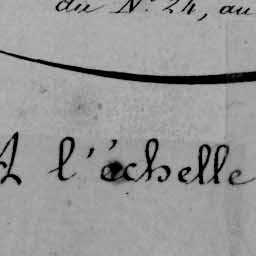 du N.º 24, au
A l'échelle